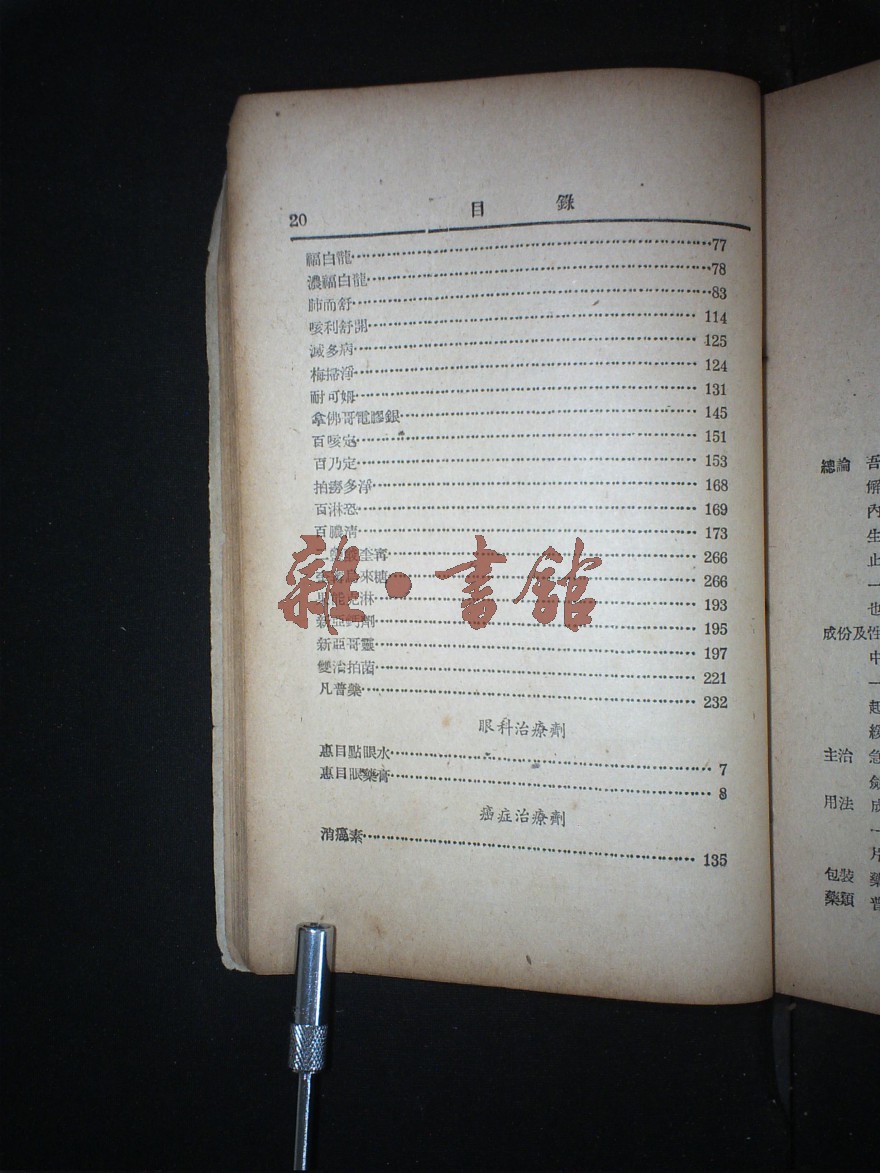 20 目錄
福白龍 77
濃福白龍 78
肺而舒 83
咳利舒開 114
滅多病 125
梅掃淨 124
耐可姆 131
拿佛哥電膠銀 145
百咳定 151
百乃定 153
拍癆多淨 168
百淋恐 169
百膿清 173
266
266
193
195
新亞哥靈 197
雙治拍菌 221
凡普藥 232
眼科治療劑
惠目點眼水 7
惠目眼藥膏 8
癌症治療劑
消癌素 135
雜·書館
總論
成份及性
主治
用法
包裝
藥類